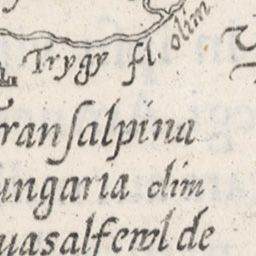 Trygy fl. olim
ranſalpina
ungaria olim
uasalfewl de